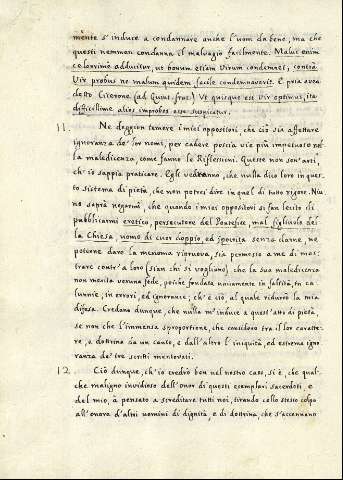 mente s' induce a condannare anche l'uom dabene, ma che
questi nemmen condanna il malvagio facilmente. Malus enim
calumnia adducitur, ut bonum etiam virum condemnet, contra
Vir probus ne malum quidem facile condemnaverit. E pria avea
detto Cicerone (ad Quint. frat.) Ut quisque est vir optimus, ita
difficillime alios improbos esse suspicatur.
11. Ne deggion temere i miei oppositori, che ciò sia affettare
ignoranza de' lor nomi, per cadere poscia vie più impetuoso nel-
la maledicenza, come fanno le Riflessioni. Queste non son' arti,
ch' io sappia praticare. Egli vedranno, che nulla dico loro in que-
sto sistema di pietà, che non potrei dire in quel di tutto rigore. Niu-
no saprà negarmi, che quando i miei oppositori si fan lecito di
pubblicarmi eretico, persecutore del Pontefice, mal figliuolo del-
la Chiesa, uomo di cuor doppio, ed ipocrita senza darne, ne
poterne dare la menoma riprova, sia permesso a me di mos-
trare contr' a loro (sian chi si vogliano) che la sua maledicenza
non merita veruna fede, poiche fondata unicamente in falsità, in ca-
lunnie, in errori, ed ignoranze; ch' è ciò, al quale ridurrò la mia
difesa. Credano dunque, che nulla m' induce a quest' atto di pietà,
se non che l'immensa sproportione, che considero tra il lor caratte-
re, e dottrina da un canto, e dall' altro l' iniquità, ed estrema igno-
ranza de' tre scritti mentovati.
12. Ciò dunque, ch' io credrò ben nel nostro caso, si è, che qual-
che maligno invidioso dell' onor di questi esemplari sacerdoti, e
del mio, à pensato a screditare tutti noi, tirando collo stesso colpo
all' onore d' altri uomini di dignità, e di dottrina, che s' accennano